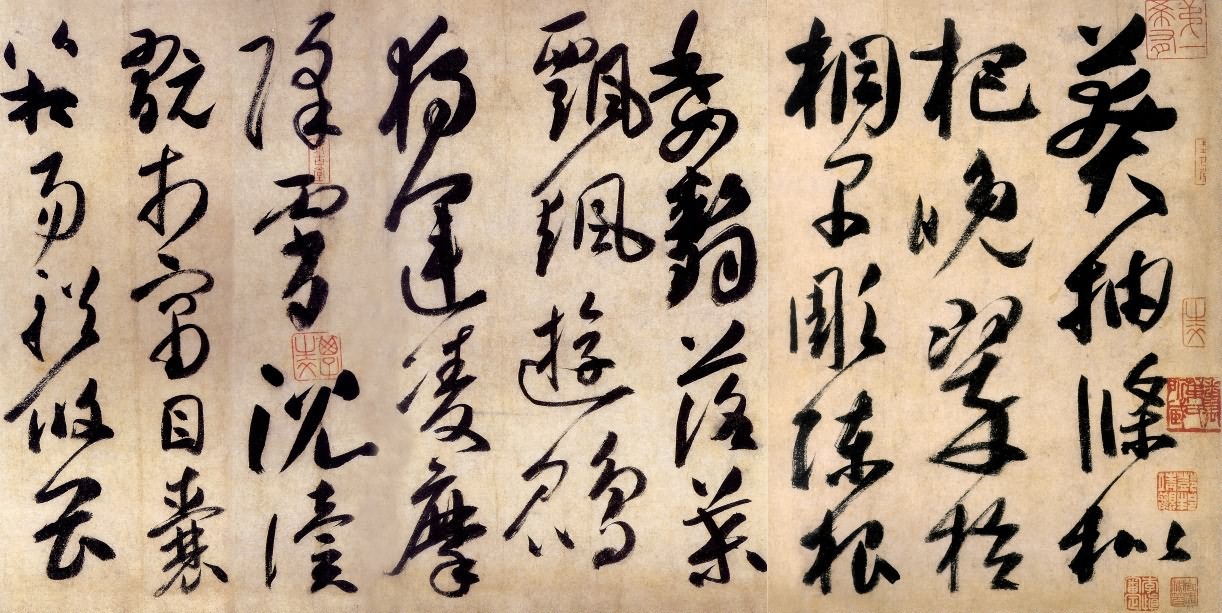 莽抽條枇
杷晚翠梧
桐早彫陳根
委翳落葉
飄颻遊鵾
獨運凌摩
絳霄耽讀
翫市寓目囊
箱易輶攸畏